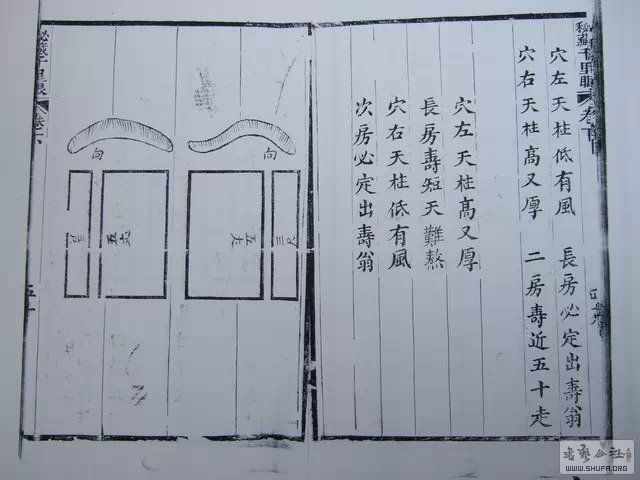 秘藏千里眼
穴左天柱低有風 長房必定出壽翁
穴右天柱髙又厚 二房壽近五十走
穴左天柱髙又厚
長房壽短天難熬
穴右天柱低有風
次房必定出壽翁
向
三尺
五尺
向
秘藏千里眼
書藝公社
WWW.SHUFA.ORG